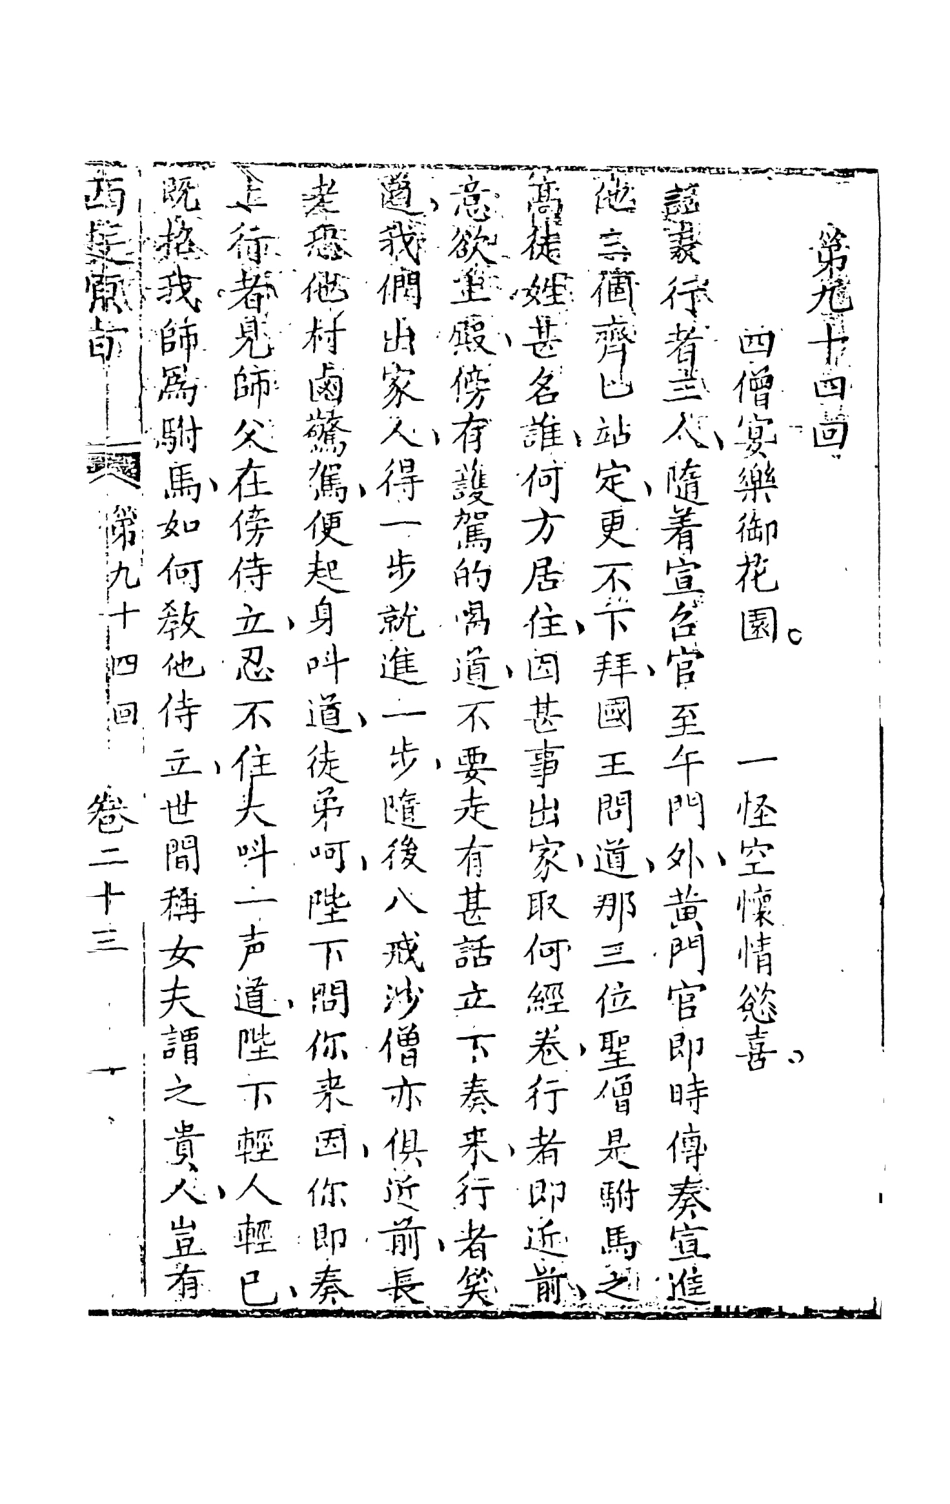 第九十四回
四僧宴樂御花園。　一怪空懷情慾喜。
話表行者三人、隨着宣召官至午門外、黃門官即時傳奏宣進
他三個齊齊站定、更不下拜、國王問道、那三位聖僧是駙馬之
高徒、姓甚名誰、何方居住、因甚事出家、取何經卷、行者即近前、
意欲上殿、傍有護駕的喝道、不要走有甚話立下奏来、行者笑
道、我們出家人、得一步就進一步、隨後八戒沙僧亦俱近前、長
老恐他村鹵驚駕、便起身叫道、徒弟呵、陛下問你来因、你即奏
上、行者見師父在傍侍立、忍不住大叫一声道、陛下輕人輕己、
既招我師爲駙馬、如何教他侍立、世間稱女夫謂之貴人、豈有
西遊原旨　第九十四回　卷二十三　一